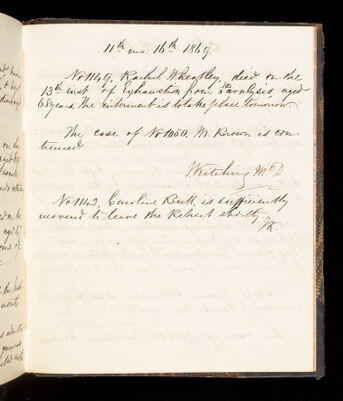 11th mo: 16th 1869
No 1149, Rachel Wheatley, died on the
13th inst. of Exhaustion from Paralysis, aged
68 years. The interment is to take place tomorrow
The case of No 1060. W. Brown is con-
tinued
Kitching M.D
No 1142, Caroline is sufficiently
recovered to leave the Retreat shortly.
JK.